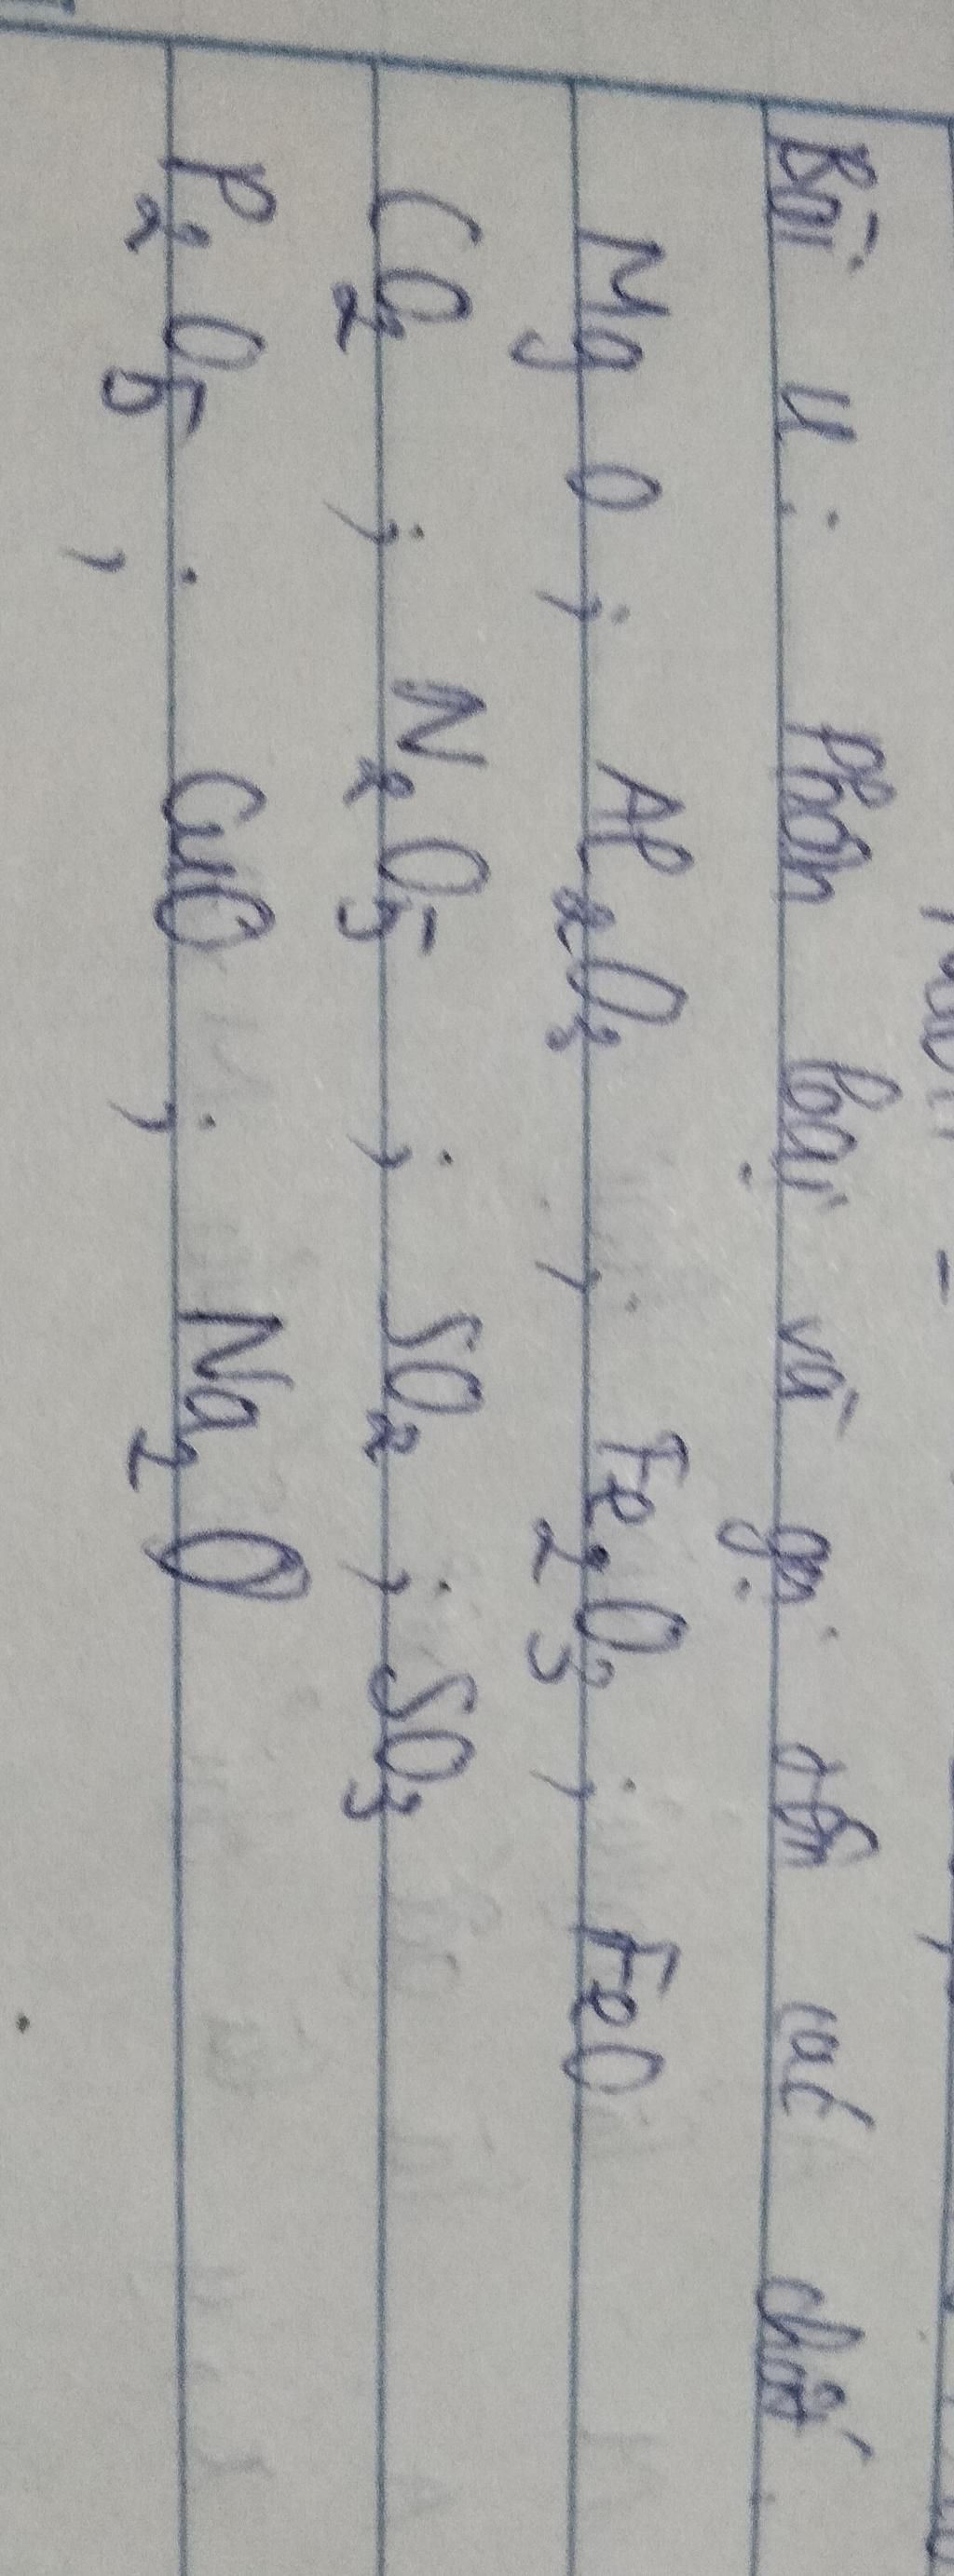 Bài 4: Phân loại và gọi tên các chất
MgO ; Al2O3 ; Fe2O3 ; FeO
CO2 ; N2O5 ; SO2 ; SO3
P2O5 ; CuO ; Na2O